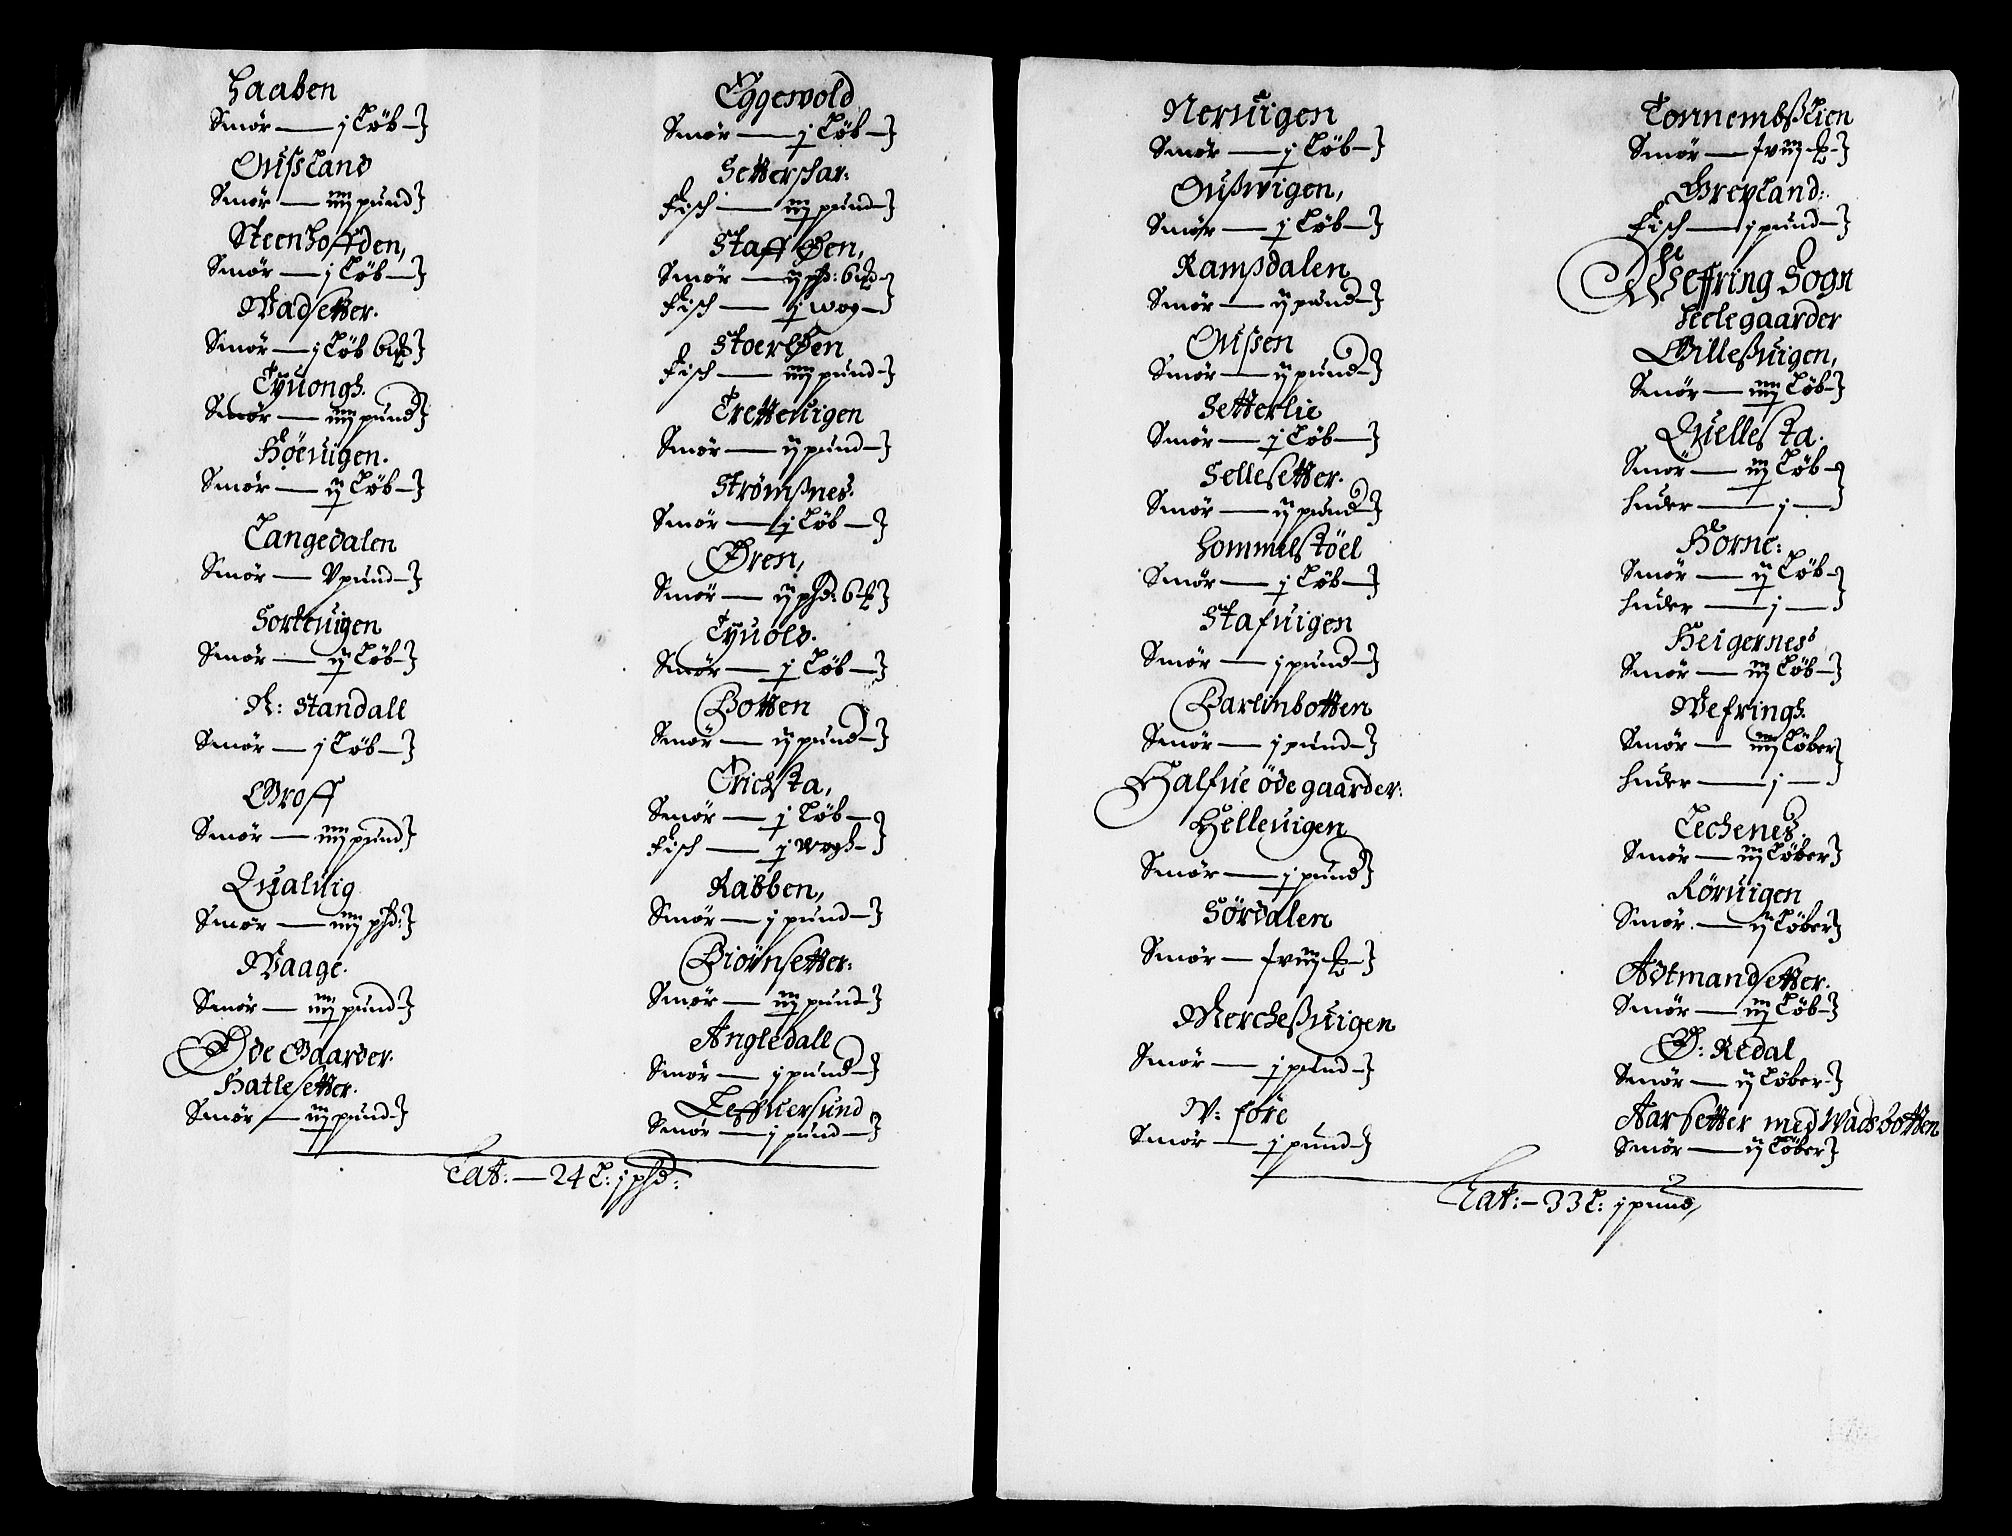 Haaben
Smör — j Löb
Outßland
Smör — iiij pund
Steenhoffden,
Smör — j Löb
Wadsetter.
Smör — j Löb 6 ℔
Tyuongs.
Smör — iiij pund
Höeuigen.
Smör — ij Löb
Langedalen
Smör — V pund
Sorteuigen
Smör — ij Löb
N: Standall
Smör — j Löb
Groff
Smör — iiij pund
Qualuig
Smör — iiij phd:
Waage.
Smör — iiij pund
Øde Gaarder.
Hatlesetter.
Smör — iij pund
Eggewold
Smör — j Löb
Setterschar.
Fisch — iij pund
Staff Øen,
Smör — ij phd: 6 ℔
Fisch — j wog
StoerØen
Fisch — iiij pund
Tretteuigen
Smör — ij pund
Strømßnes.
Smör — j Löb
Øren,
Smör — ij phd: 6 ℔
Tyuold.
Smör — j Löb
Botten
Smör — ij pund
Erichsta,
Smör — j Löb
Fisch — j wogh
Rabben,
Smör — j pund
Biörnsetter:
Smör — iij pund
Angledall
Smör — j pund
Leffuersund
Smör — j pund
Lat: — 24 L: j phd:
Neruigen
Smör — j Löb
Outßwigen,
Smör — j Löb
Ramsdalen
Smör — ij pund
Oußen
Smör — ij pund
Setterlie
Smör — j Löb
Sellesetter.
Smör — ij pund
Hommelstöel
Smör — j Löb
Stafuigen
Smör — j pund
Barlinbotten
Smör — j pund
Halfue ödegaarder:
Helleuigen
Smör — j pund
Sördalen
Smör — xviij ℔
Mercheßuigen
Smör — j pund
N: Före
Smör — j pund
Tonnembßlien
Smör — xviij ℔
Grepland:
Fisch — j pund
Weffring Sogn
Heelegaarder
Gilleßuigen,
Smör — iiij Löb
Quellesta.
Smör — iij Löb
Huder — j —
Horne:
Smör — ij Löb
Huder — j —
Heigernes
Smör — iij Löb
Wefrings.
Smör — iiij Löber
Huder — j —
Lechenes.
Smör — iij Löber
Röruigen
Smör — ij Löber
Adtmandsetter.
Smör — iij Löb
Ø: Redal
Smör — ij Löber
Aarsetter med Wadsbotten
Smör — ij Löber
Lat: — 33 L: j pund,